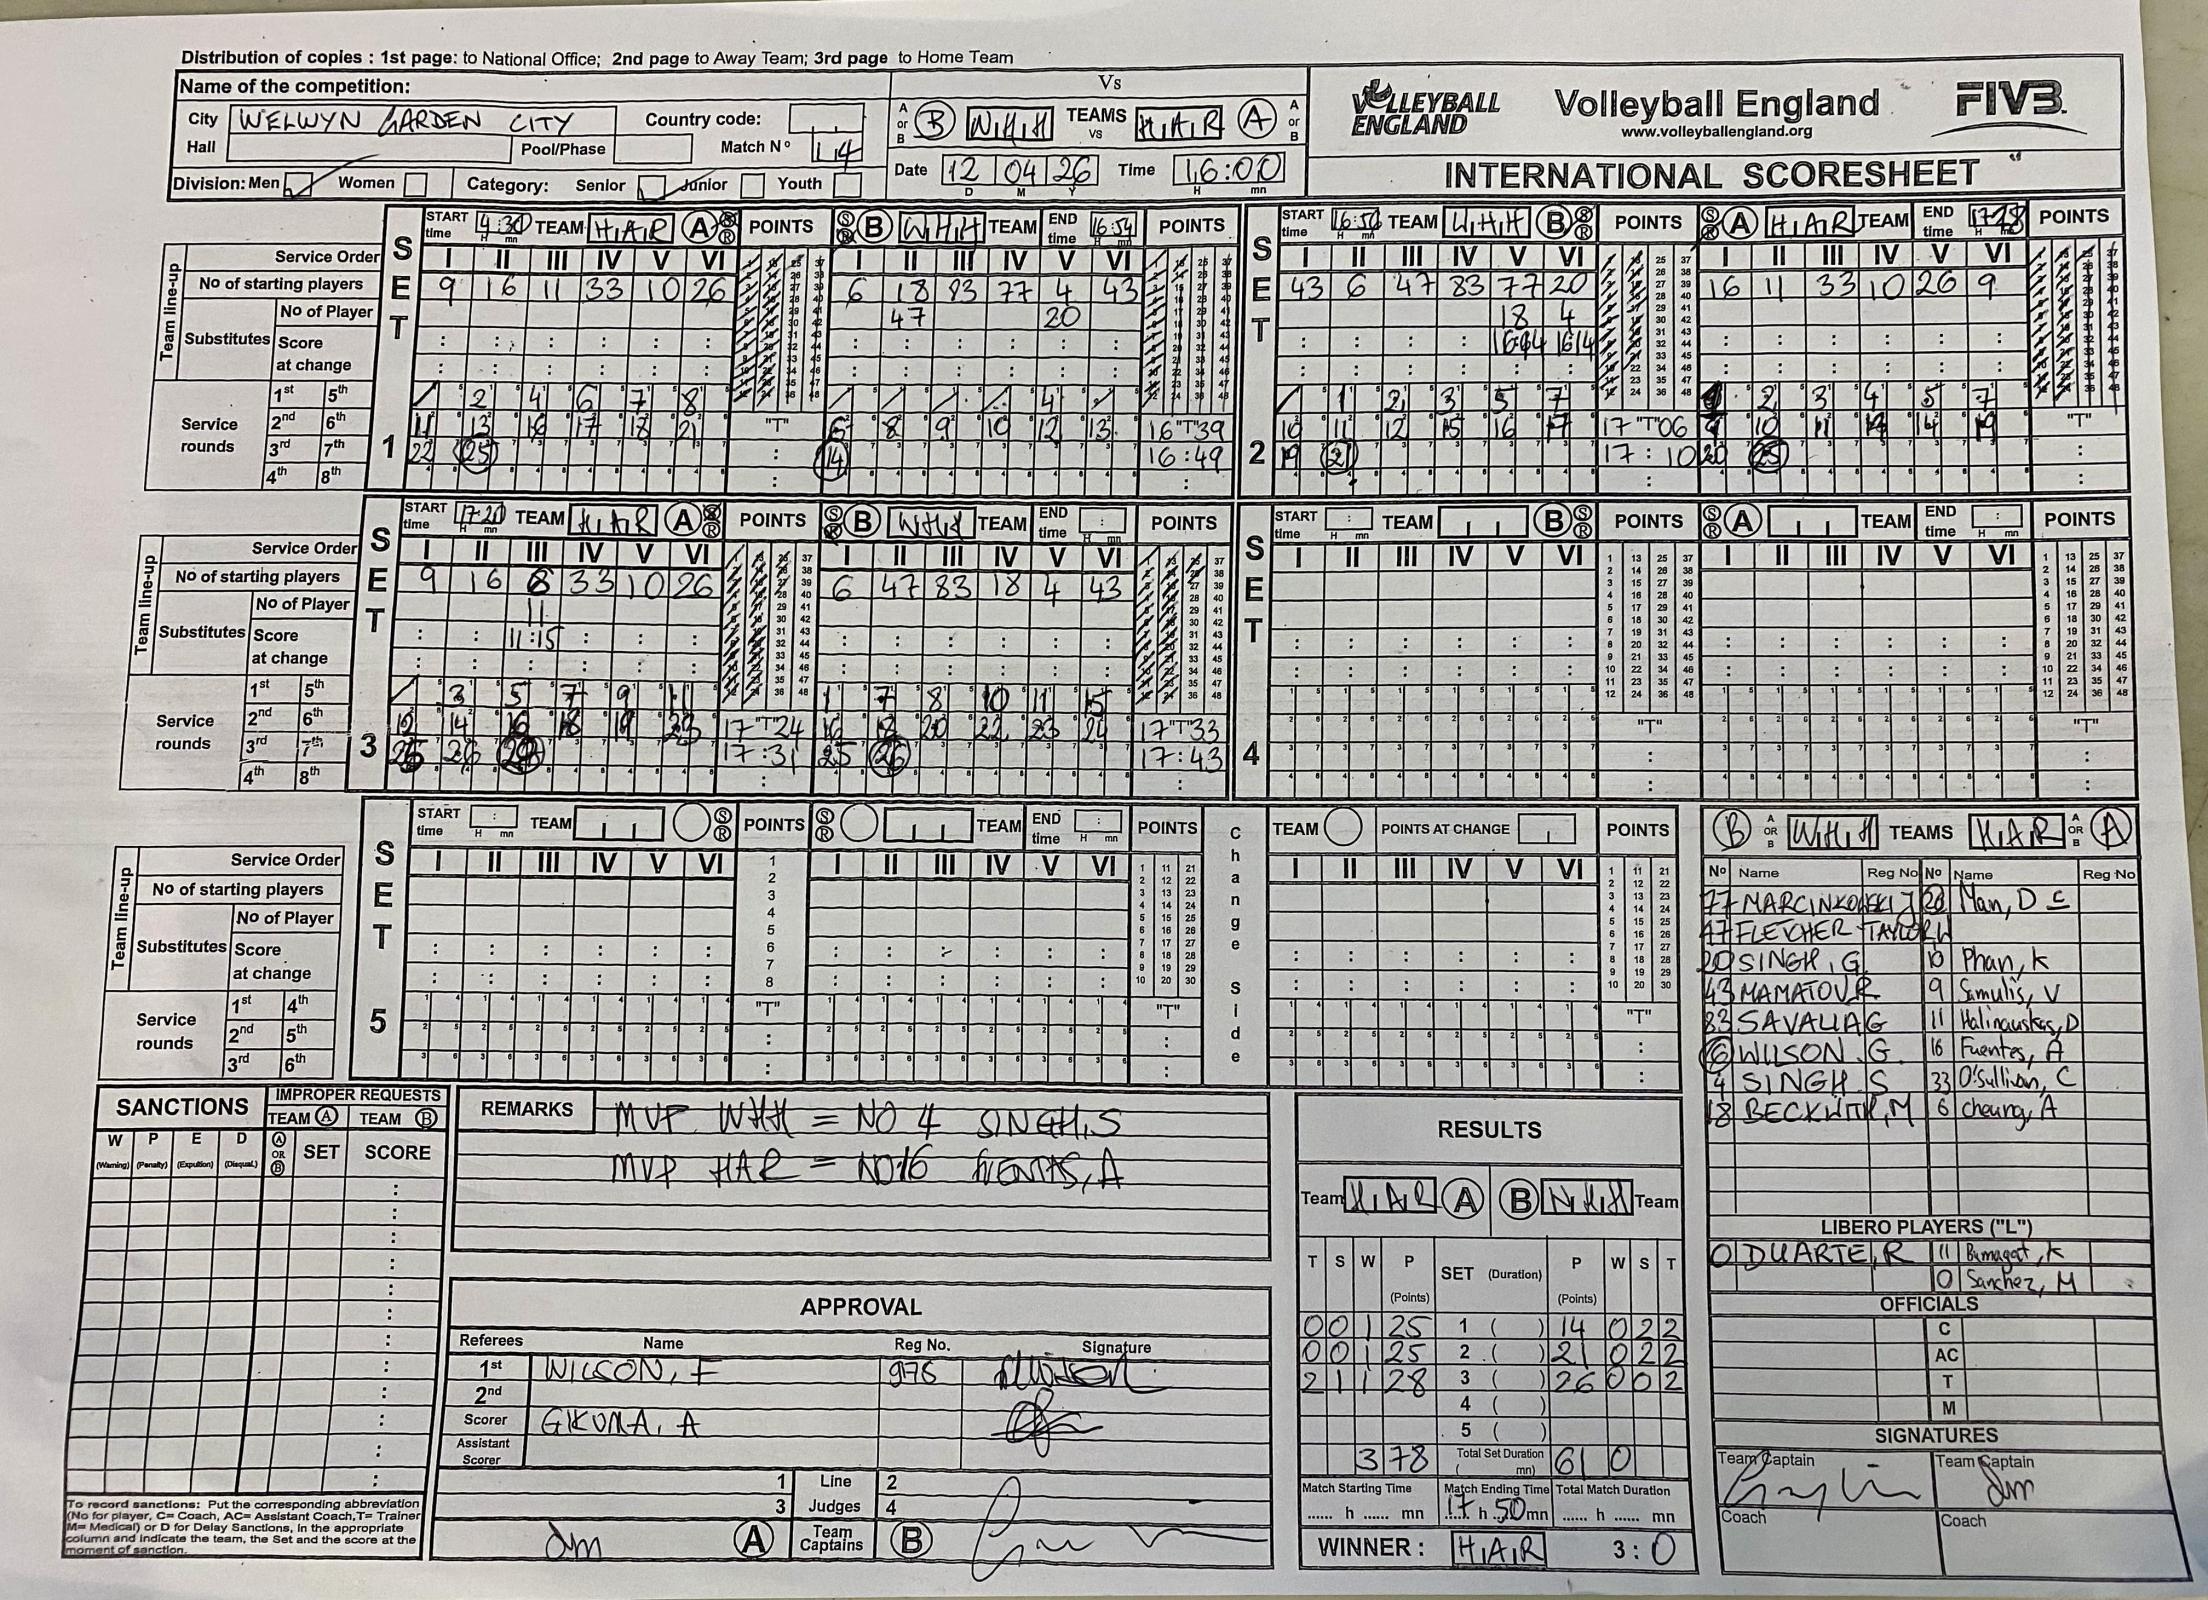 Distribution of copies : 1st page: to National Office; 2nd page to Away Team; 3rd page to Home Team
Name of the competition:
City WELWYN GARDEN CITY Country code:
Hall Pool/Phase Match Nº 14
Division: Men Women Category: Senior Junior Youth
Vs
A or B B WHH TEAMS VS HAR A A or B
Date 12 04 26 Time 16:00
D M Y H mn
VOLLEYBALL ENGLAND Volleyball England FIVB
www.volleyballengland.org
INTERNATIONAL SCORESHEET
SET 1
START time 4:30 TEAM HAR A POINTS B WHH TEAM END time 16:54 POINTS
Service Order I II III IV V VI I II III IV V VI
No of starting players 9 16 11 33 10 26 6 18 83 77 4 43
Team line-up Substitutes No of Player 47 20
Score at change
Service rounds
1st 5th 2 4 6 7 8 4
2nd 6th 11 13 16 17 18 21 "T" 6 8 9 10 12 13 16"T"39
3rd 7th 22 25 14 16:49
4th 8th
SET 2
START time 16:56 TEAM WHH B POINTS A HAR TEAM END time 17:28 POINTS
I II III IV V VI I II III IV V VI
43 6 47 83 77 20 16 11 33 10 26 9
18 4
16:14 16:14
1 2 3 5 7 2 3 4 5 7
10 11 12 15 16 17 17"T"06 9 10 11 14 19 "T"
19 21 17:10 20 25
SET 3
START time 17:20 TEAM HAR A POINTS B WHH TEAM END time POINTS
Service Order I II III IV V VI I II III IV V VI
No of starting players 9 16 8 33 10 26 6 47 83 18 4 43
Team line-up Substitutes No of Player 11
Score at change 11:15
Service rounds
1st 5th 3 5 7 9 11 1 7 8 10 11 15
2nd 6th 12 14 16 18 19 23 17"T"24 16 18 20 22 23 24 17"T"33
3rd 7th 25 26 28 17:31 25 26 17:43
4th 8th
SET 4
START time TEAM B POINTS A TEAM END time POINTS
I II III IV V VI I II III IV V VI
"T" "T"
SET 5
START time TEAM POINTS TEAM END time POINTS
Change Side
TEAM POINTS AT CHANGE POINTS
Service Order I II III IV V VI I II III IV V VI I II III IV V VI
No of starting players
Team line-up Substitutes No of Player
Score at change
Service rounds
1st 4th "T" "T" "T"
2nd 5th
3rd 6th
B A OR B WHH TEAMS HAR A OR B A
Nº Name Reg No Nº Name Reg No
77 MARCINKOWSKI J 28 Man, D C
47 FLETCHER TAYLOR W
20 SINGH, G 10 Phan, K
43 MAMATOV R 9 Simulis, V
83 SAVALIA G 11 Halinauskas, D
6 WILSON. G. 16 Fuentes, A
4 SINGH S 33 O'Sullivan, C
18 BECKWITH, M 6 cheung, A
LIBERO PLAYERS ("L")
0 DUARTE, R 11 Bumagat, K
0 Sanchez, M
OFFICIALS
C
AC
T
M
SIGNATURES
Team Captain Team Captain
Coach Coach
SANCTIONS IMPROPER REQUESTS
TEAM A TEAM B
W P E D A OR B SET SCORE
(Warning) (Penalty) (Expultion) (Disqual.)
To record sanctions: Put the corresponding abbreviation
(No for player, C= Coach, AC= Assistant Coach, T= Trainer
M= Medical) or D for Delay Sanctions, in the appropriate
column and indicate the team, the Set and the score at the
moment of sanction.
REMARKS MVP WHH = NO 4 SINGH,S
MVP HAR = NO16 FUENTAS, A
APPROVAL
Referees Name Reg No. Signature
1st WILSON, F 975
2nd
Scorer GKUMA, A
Assistant Scorer
1 Line 2
3 Judges 4
A Team Captains B
RESULTS
Team HAR A B WHH Team
T S W P (Points) SET (Duration) P (Points) W S T
0 0 1 25 1 ( ) 14 0 2 2
0 0 1 25 2 ( ) 21 0 2 2
2 1 1 28 3 ( ) 26 0 0 2
4 ( )
5 ( )
3 78 Total Set Duration ( mn) 61 0
Match Starting Time Match Ending Time Total Match Duration
...... h ...... mn 17 h 50 mn ...... h ...... mn
WINNER : HAR 3 : 0